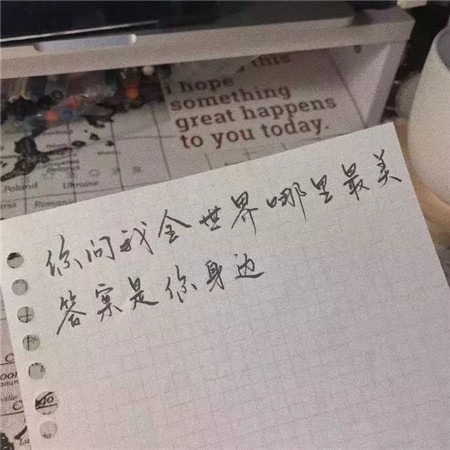 this
i hope
something
great happens
to you today.
Poland
Ukraine
Romania
你问我全世界哪里最美
答案是你身边